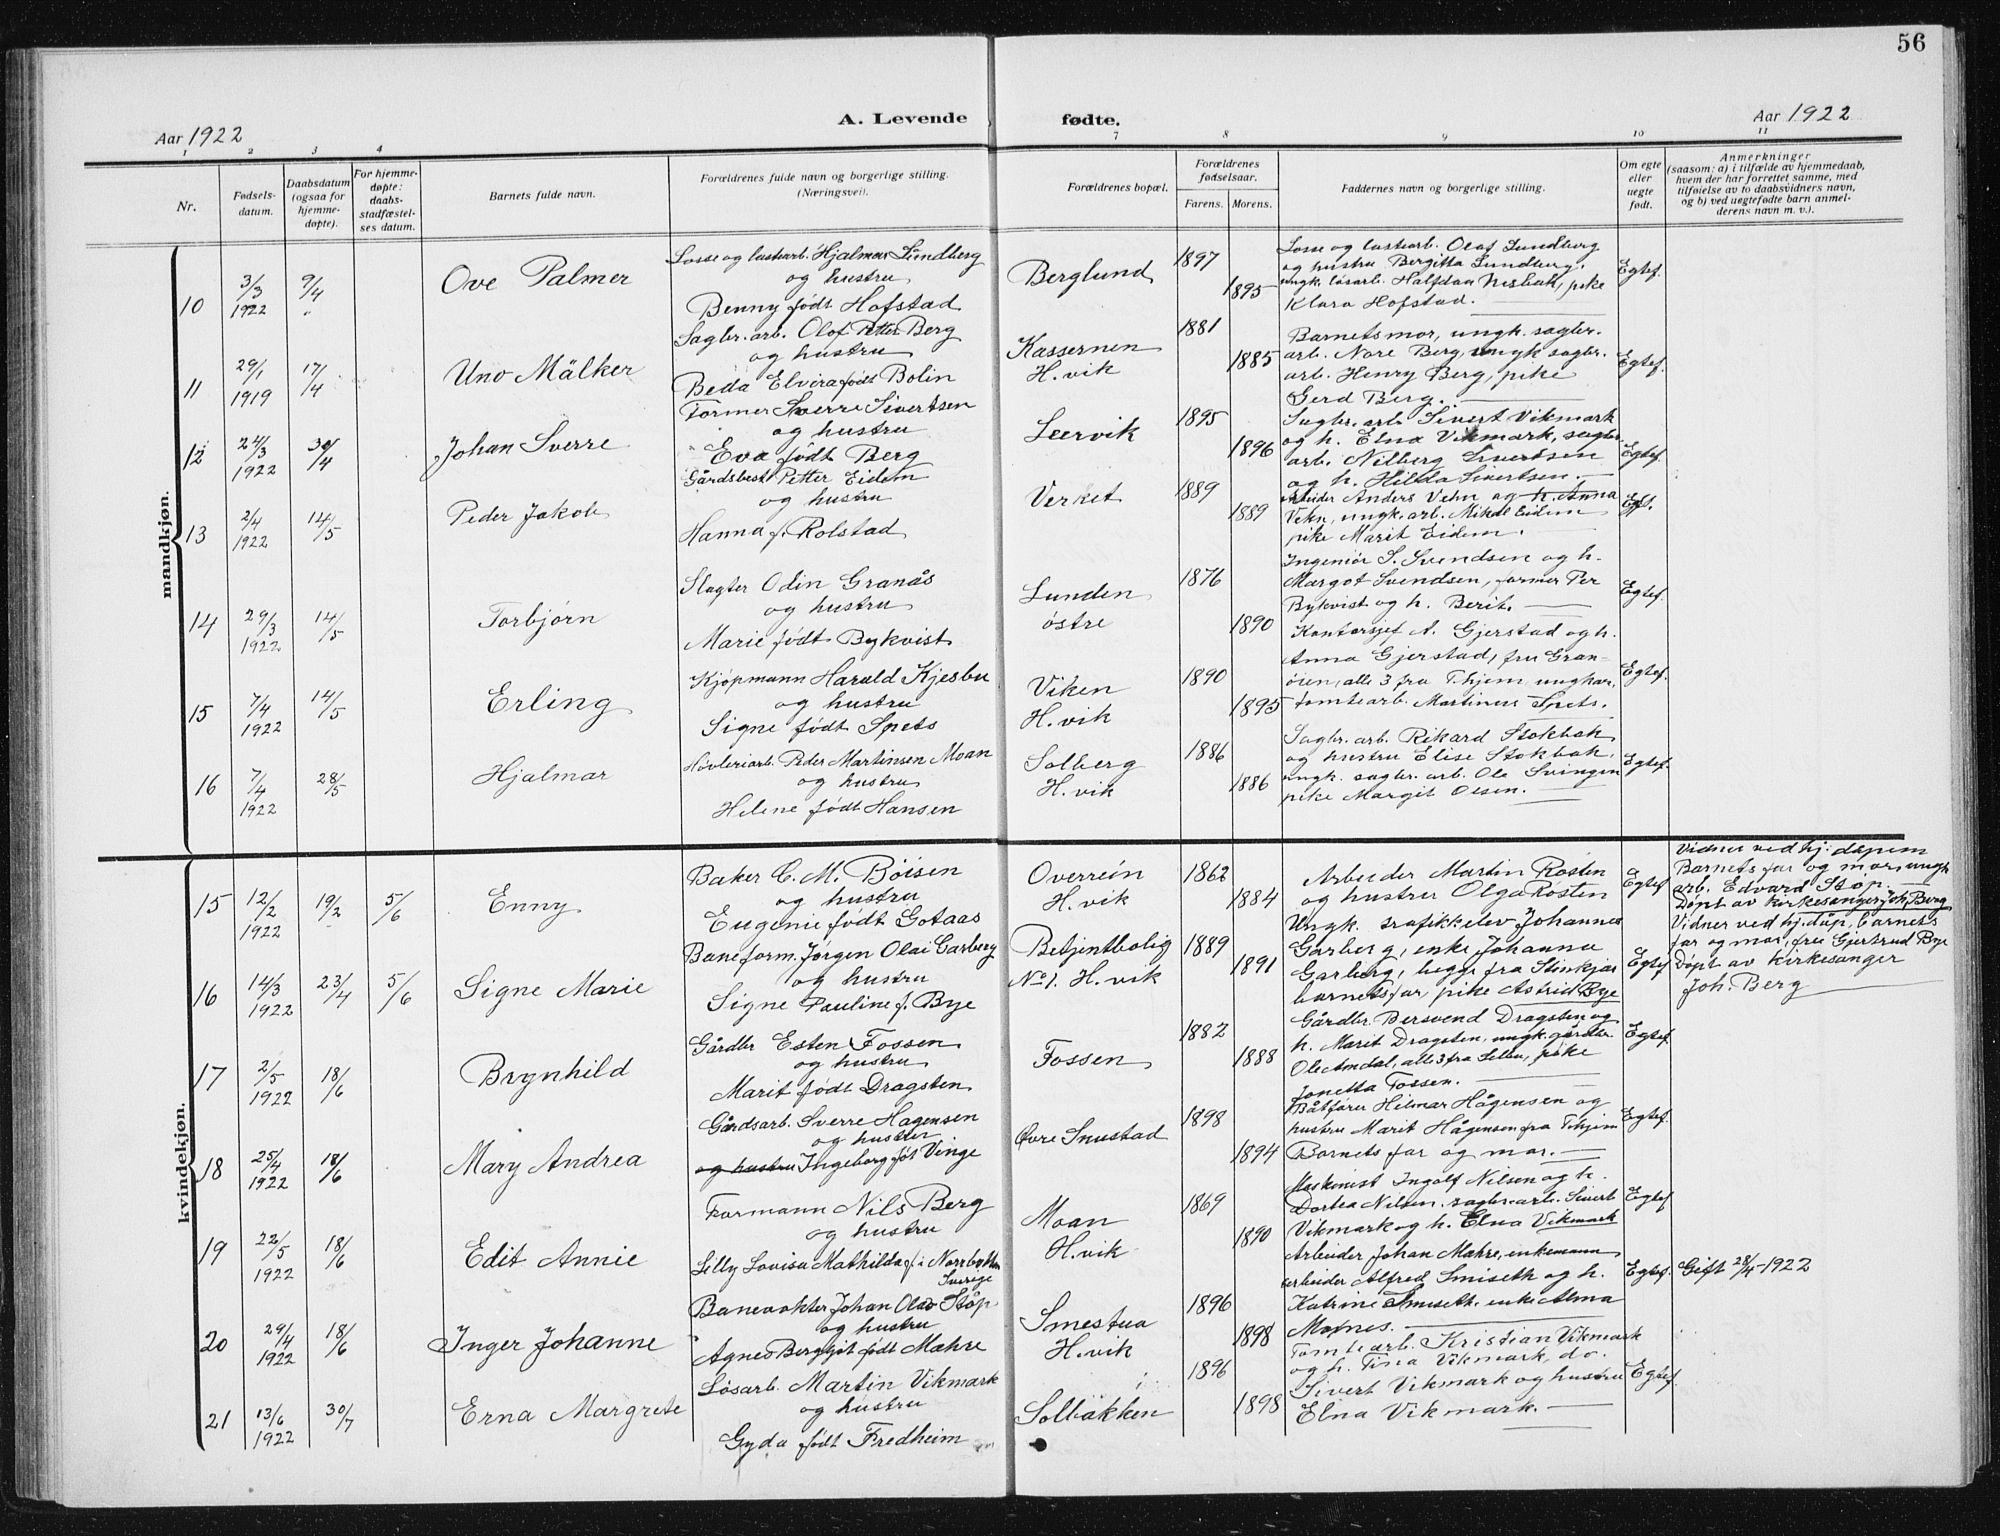 56
Aar 1922
A. Levende
fødte.
Aar 1922
1 2 3 4 7 8 9 10 11
Nr.
Fødsels-
datum.
Daabsdatum
(ogsaa for
hjemme-
døpte).
For hjemme-
døpte:
daabs-
stadfæstel-
ses datum.
Barnets fulde navn.
Forældrenes fulde navn og borgerlige stilling.
(Næringsvei).
Forældrenes bopæl.
Forældrenes
fødselsaar.
Farens. Morens.
Faddernes navn og borgerlige stilling.
Om egte
eller
uegte
født.
Anmerkninger
(saasom: a) i tilfælde av hjemmedaab,
hvem der har forrettet samme, med
tilføielse av to daabsvidners navn,
og b) ved uegtefødte barn anmel-
derens navn m. v.).
mandkjøn.
10
3/3
1922
9/4
"
Ove Palmer
Losse og lastearb. Hjalmar Lundberg
og hustru
Benny født Hofstad
Berglund
1897
1895
Losse og lastearb. Olof Lundberg
og hustru Bergitta Lundberg,
ungk. løsarb. Halfdan pike
Klara Hofstad.
Egtef.
11
29/1
1919
17/4
Uno Mälker
Sagbr. arb. Olof Petter Berg
og hustru
Beda Elvira født Bolin
Kassernen
H.vik
1881
1885
Barnets mor, ungk. sagbr.
arb. Nore Berg, ungk sagbr.
arb. Henry Berg, pike
Gerd Berg.
Egtef.
12
24/3
1922
30/4
Johan Sverre
Former Sverre Sivertsen
og hustru
Eva født Berg
Leervik
1895
1896
Sagbr. arb. Sivert Vikmark
og h. Elna Vikmark, sagbr.
arb. Nilberg Sivertsen
og h. Hilda Sivertsen.
Egtef.
13
2/4
1922
14/5
Peder Jakob
Gårdsbest. Petter Eidem
og hustru
Hanna f. Rolstad
Verket
1889
1889
Arbeider Anders Vehn og h. Anna
Vehn, ungk. arb. Mikal Eidem
pike Marit Eidem.
Egt.
14
29/3
1922
14/5
Torbjørn
Slagter Odin Granås
og hustru
Marie født Bykvist
Lunden
østre
1876
1890
Ingeniør S. Svendsen og h.
Margot Svendsen, former Per
Bykvist og h. Berit.
Egtef.
15
7/4
1922
14/5
Erling
Kjøpmann Harald Kjesbu
og hustru
Signe født Spets
Viken
H.vik
1890
1895
Kontorsjef A. Gjerstad og h.
Anna Gjerstad, fru Gran-
øien, alle 3 fra T.hjem ungkar,
tomtearb. Martinus Spets.
Egtef.
16
7/4
1922
28/5
Hjalmar
Høvleriarb. Peder Martinsen Moan
og hustru
Helene født Hansen
Solberg
H.vik
1886
1886
Sagbr. arb. Rikard Stokbak
og hustru Elise Stokbak,
ungk. sagbr. arb. Ole Svingen
pike Margit Olsen.
Egtef.
kvindekjøn.
15
12/2
1922
19/2
5/6
Enny
Baker C. M. Böisen
og hustru
Eugenie født Gotaas
Overrein
H.vik
1862
1884
Arbeider Martin Rosten
og hustru Olga Rosten
Egtef
Vidner ved hj. dåpen
Barnets far og mor, ungk
arb. Edvard Støp.
Døpt av kirkesanger Joh. Berg
16
14/3
1922
23/4
5/6
Signe Marie
Baneform. Jørgen Olai Garberg
og hustru
Signe Pauline f. Bye
Betjentbolig
No 1. H.vik
1889
1891
Ungk. trafikkelev Johannes
Garberg, enke Johanna
Garberg, begge fra Stinkjær
barnets far, pike Astrid Bye
Egtef
Vidner ved hj.dåp. barnets
far og mor, fru Gjertrud Bye
Døpt av kirkesanger
Joh. Berg
17
2/5
1922
18/6
Brynhild
Gårdbr Esten Fossen
og hustru
Marit født Dragsten
Fossen
1882
1888
Gårdbr. Bersvend Dragsten og
h. Marit Dragsten, ungk. gårdbr
Ole Amdal, alle 3 fra Selbu, pike
Jonetta Fossen.
Egtef.
18
25/4
1922
18/6
Mary Andrea
Gårdsarb. Sverre Hagensen
og hustru
og hustru Ingeborg føt Vinge
Øvre Smestad
1898
1894
Båtfører Hilmar Hågensen og
hustru Marit Hågensen fra T.hjem
Barnets far og mor.
Egtef.
19
22/5
1922
18/6
Edit Annie
Formann Nils Berg
og hustru
Lilly Lovisa Mathilda f. i Norrbotten
Sverige
Moan
H.vik
1869
1890
Maskinist Ingolf Nilsen og h.
Dortea Nilsen, sagbr. arb. Sivert
Vikmark og h. Elna Vikmark
Egtef.
20
29/4
1922
18/6
Inger Johanne
Banevokter Johan Olav Støp
og hustru
Agnes Bergljot født Mæhre
Smestua
H.vik
1896
1898
Arbeider Johan Mæhre, enkemann
arbeider Alfred Smiseth og h.
Katrine Smiseth, enke Alma
Egtef.
Gift 28/4-1922
21
13/6
1922
30/7
Erna Margrete
Løsarb. Martin Vikmark
og hustru
Gyda født Fredheim
Solbakken
1896
1898
Tomtearb. Kristian Vikmark
og h. Tina Vikmark, do.
Sivert Vikmark og hustru
Elna Vikmark.
Egtef.